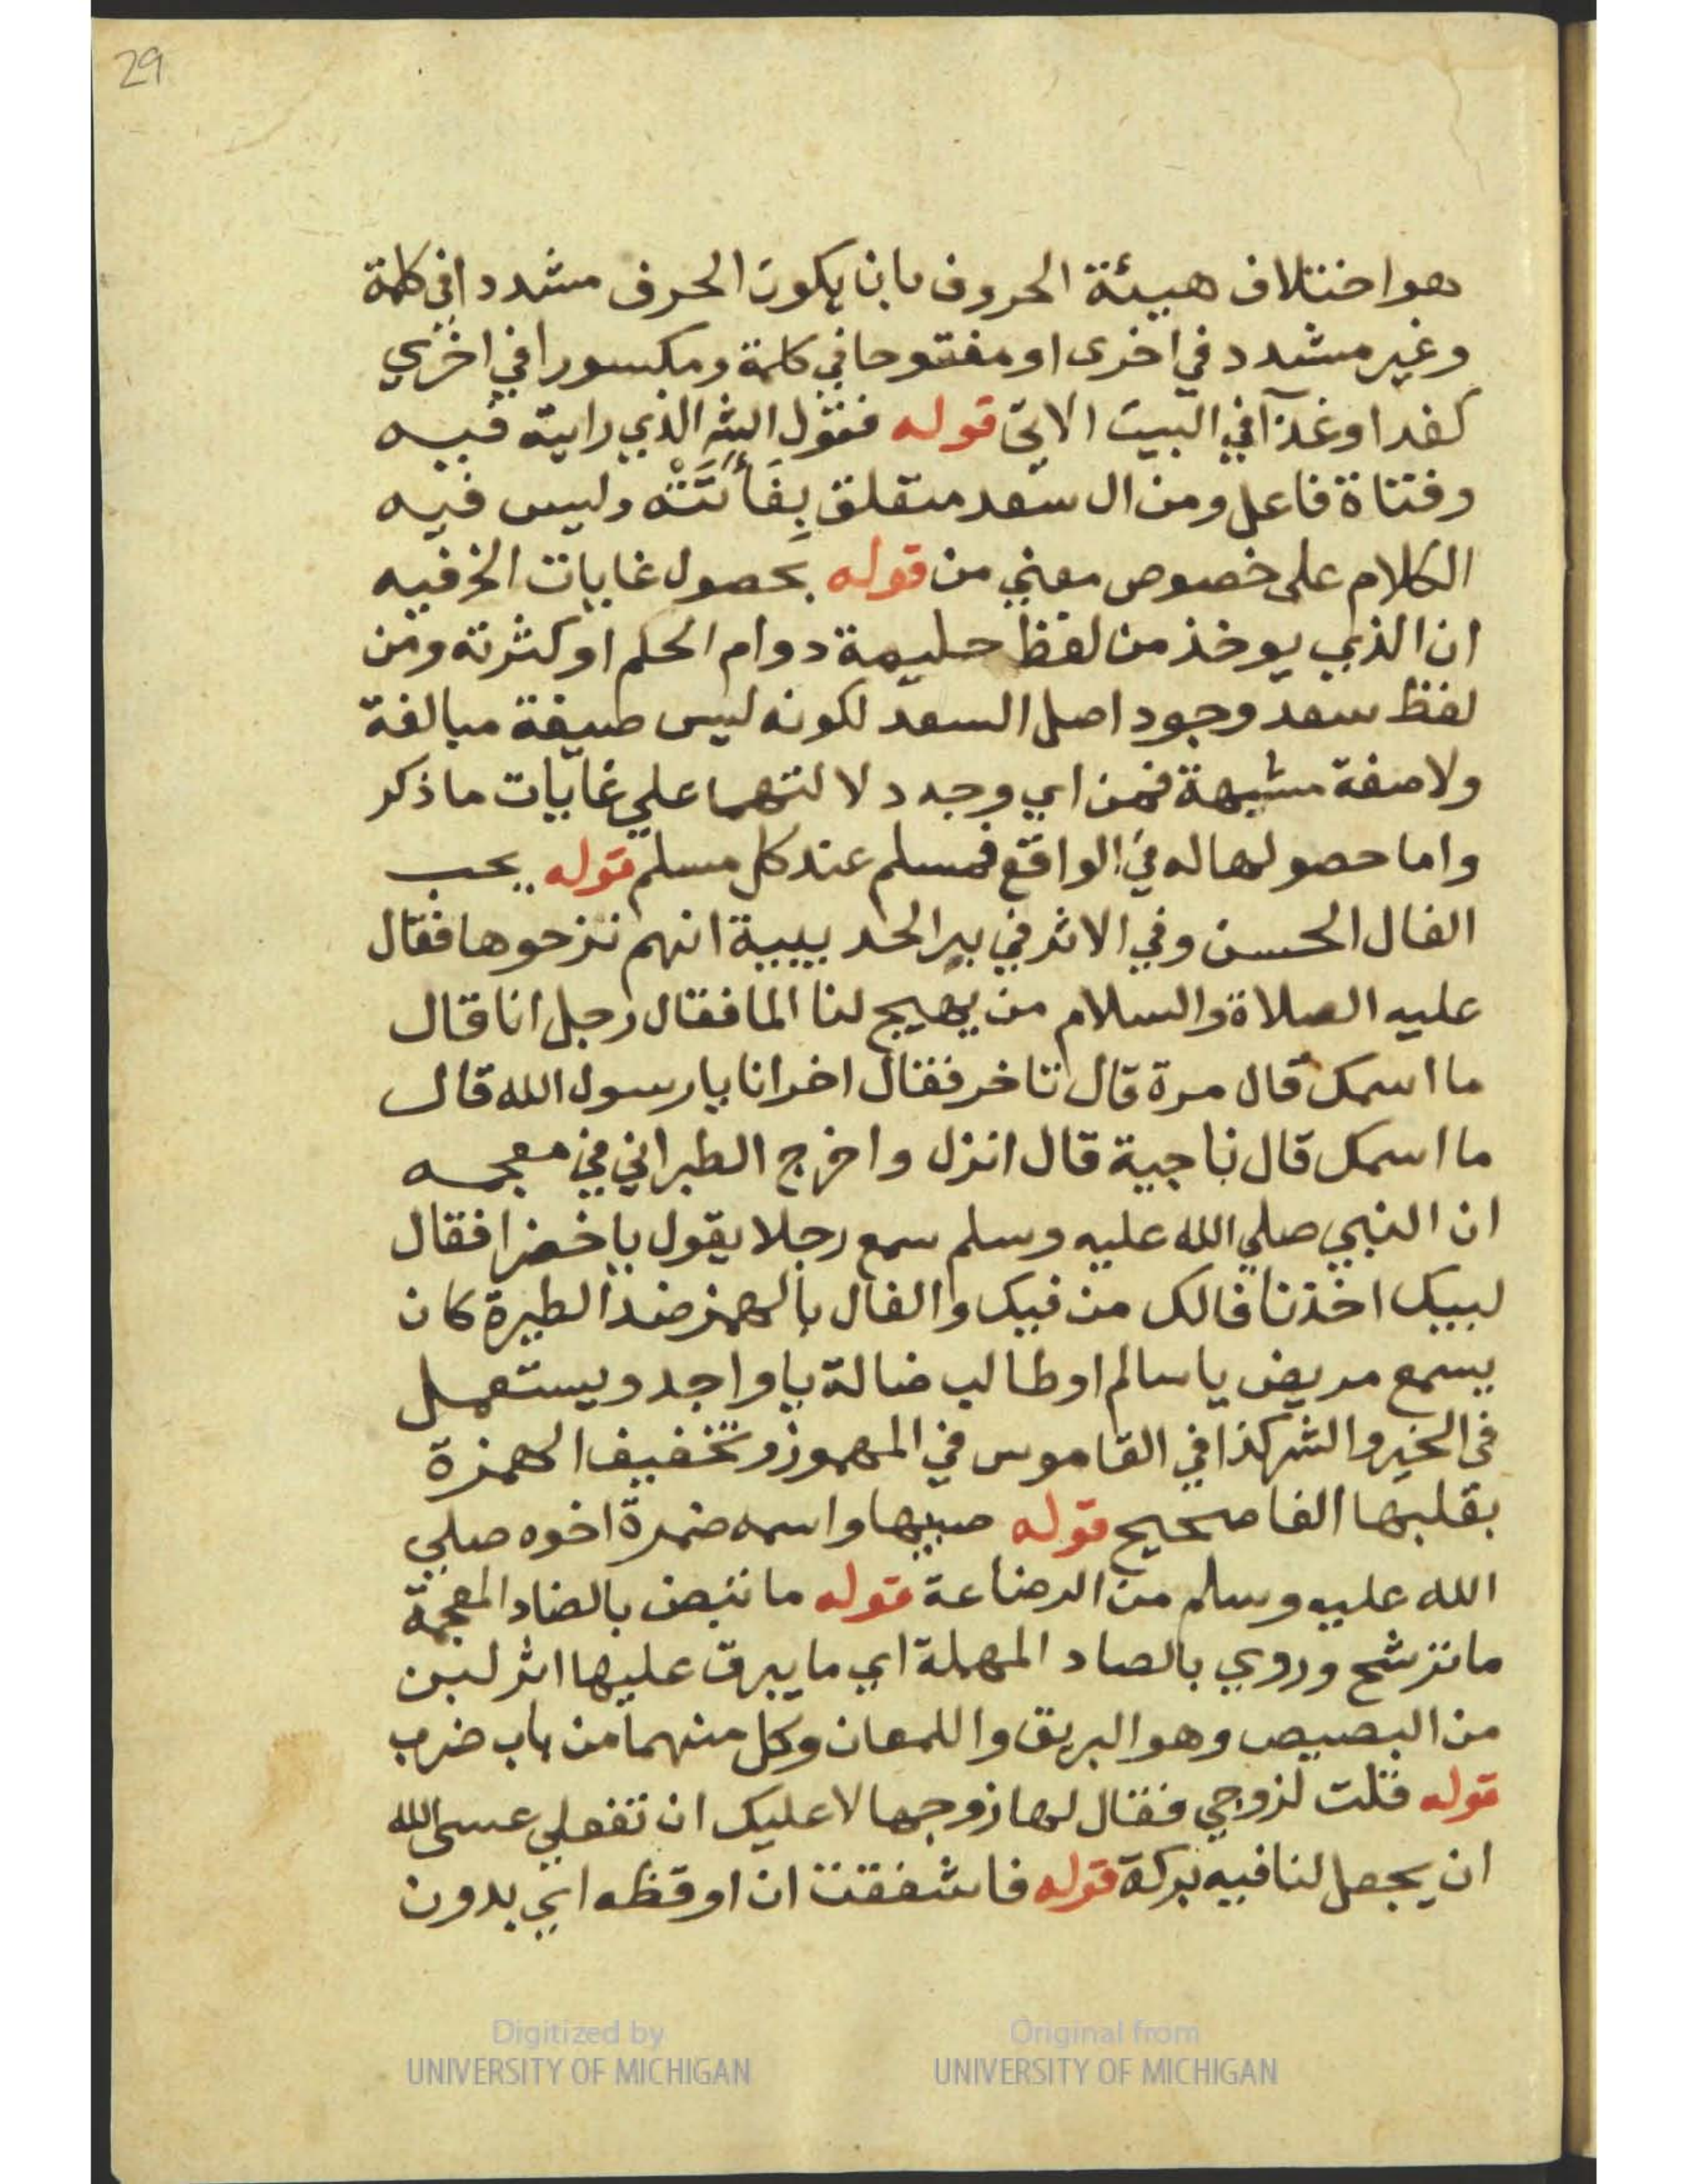 29
هو اختلاف هيئة الحروف بان يكون الحرف مشددا في كلمة
وغير مشدد في اخرى او مفتوحا في كلمة ومكسورا في اخري
كغدا وغذآ في البيت الاتى قوله فنقول الذي رايته فيه
وفتاة فاعل ومن ال سعد متعلق بفأتَتْه وليس فيه
الكلام على خصوص معني من قوله بحصول غايات الخ فيه
ان الذي يوخذ من لفظ حليمة دوام الحلم او كثرته ومن
لفظ سعد وجود اصل السعد لكونه ليس صيغة مبالغة
ولا صفة مشبهة فمن اي وجه دلالتهما علي غايات ما ذكر
واما حصولها له في الواقع فمسلم عند كل مسلم قوله يحب
الفال الحسن وفي الاثر في بير الحديبية انهم نزحوها فقال
عليه الصلاة والسلام من يهيج لنا الما فقال رجل انا قال
ما اسمك قال مرة قال تاخر فقال اخر انا يا رسول الله قال
ما اسمك قال ناجية قال انزل واخرج الطبراني في معجمه
ان النبي صلي الله عليه وسلم سمع رجلا يقول يا خضرا فقال
لبيك اخذنا فالك من فيك والفال بالهمز ضد الطيرة كان
يسمع مريض يا سالم او طالب ضالة يا واجد ويستعمل
في الخير والشر كذا في القاموس في المهموز وتخفيف الهمزة
بقلبها الفا صحيح قوله صبيها واسمه ضمرة اخوه صلي
الله عليه وسلم من الرضاعة قوله ما تبض بالضاد المعجمة
ما ترشح وروي بالصاد المهملة اي ما يبرق عليها اثر لبن
من البصيص وهو البريق واللمعان وكل منهما من باب ضرب
قوله قلت لزوجي فقال لها زوجها لا عليك ان تفعلي عسى الله
ان يجعل لنا فيه بركة قوله فاشفقت ان اوقظه اي بدون
Digitized by
UNIVERSITY OF MICHIGAN
Original from
UNIVERSITY OF MICHIGAN